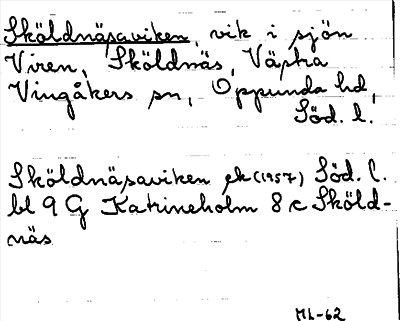 Sköldnäsaviken, vik i sjön
Viren, Sköldnäs, Västra
Vingåkers sn, Oppunda hd,
Söd. l.
Sköldnäsaviken ek (1957) Söd. l.
bl 9 G Katrineholm 8 c Sköld-
näs
ML-62